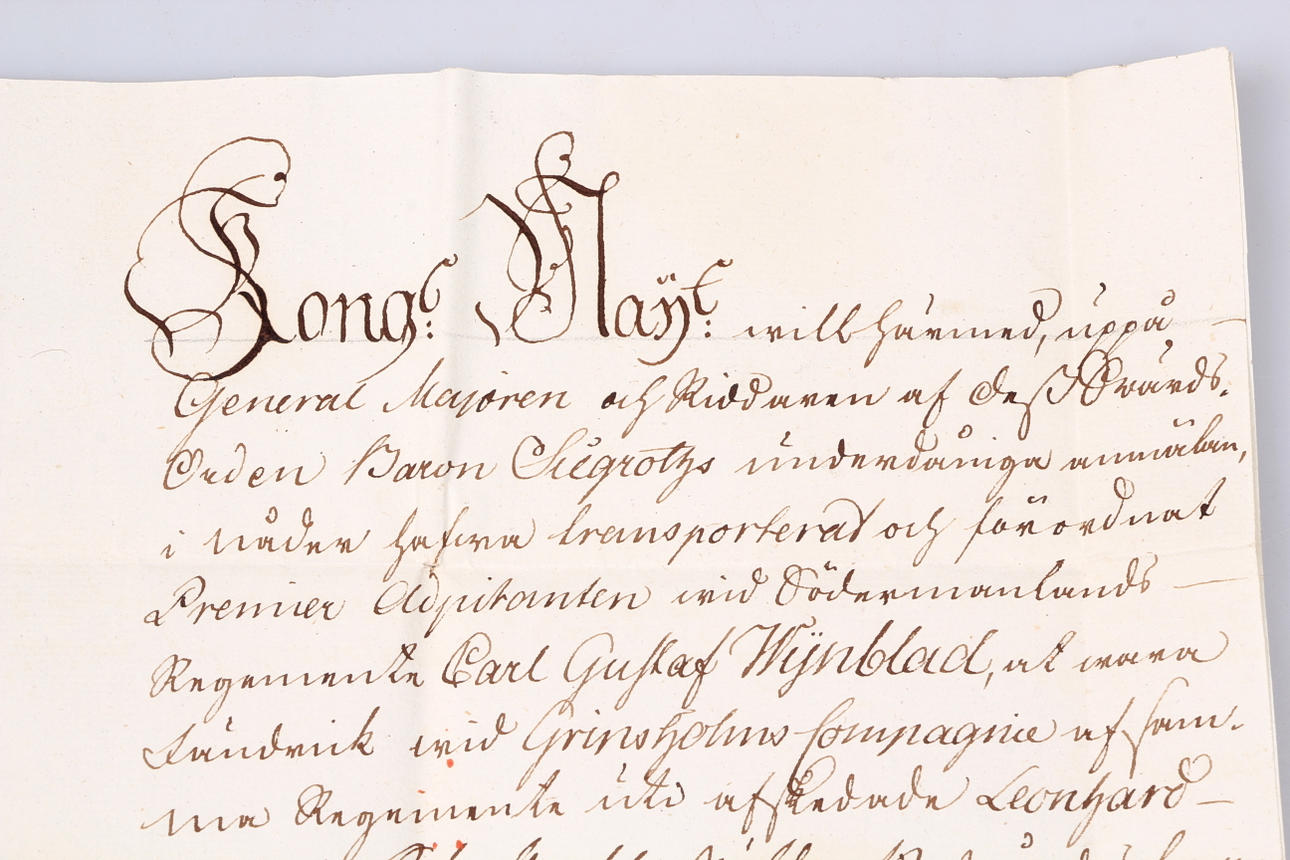 Kongl: Maÿt: will härmed, uppå
General Majoren och Riddaren af Deß Swärds-
Orden Baron Siegroths underdåniga anmälan,
i nåder hafwa transporterat och förordnat
Premier Adjutanten wid Södermanlands
Regemente Carl Gustaf Wÿnblad, at wara
Fändrick wid Gripsholms Compagnie af sam-
ma Regemente uti afskedade Leonhard